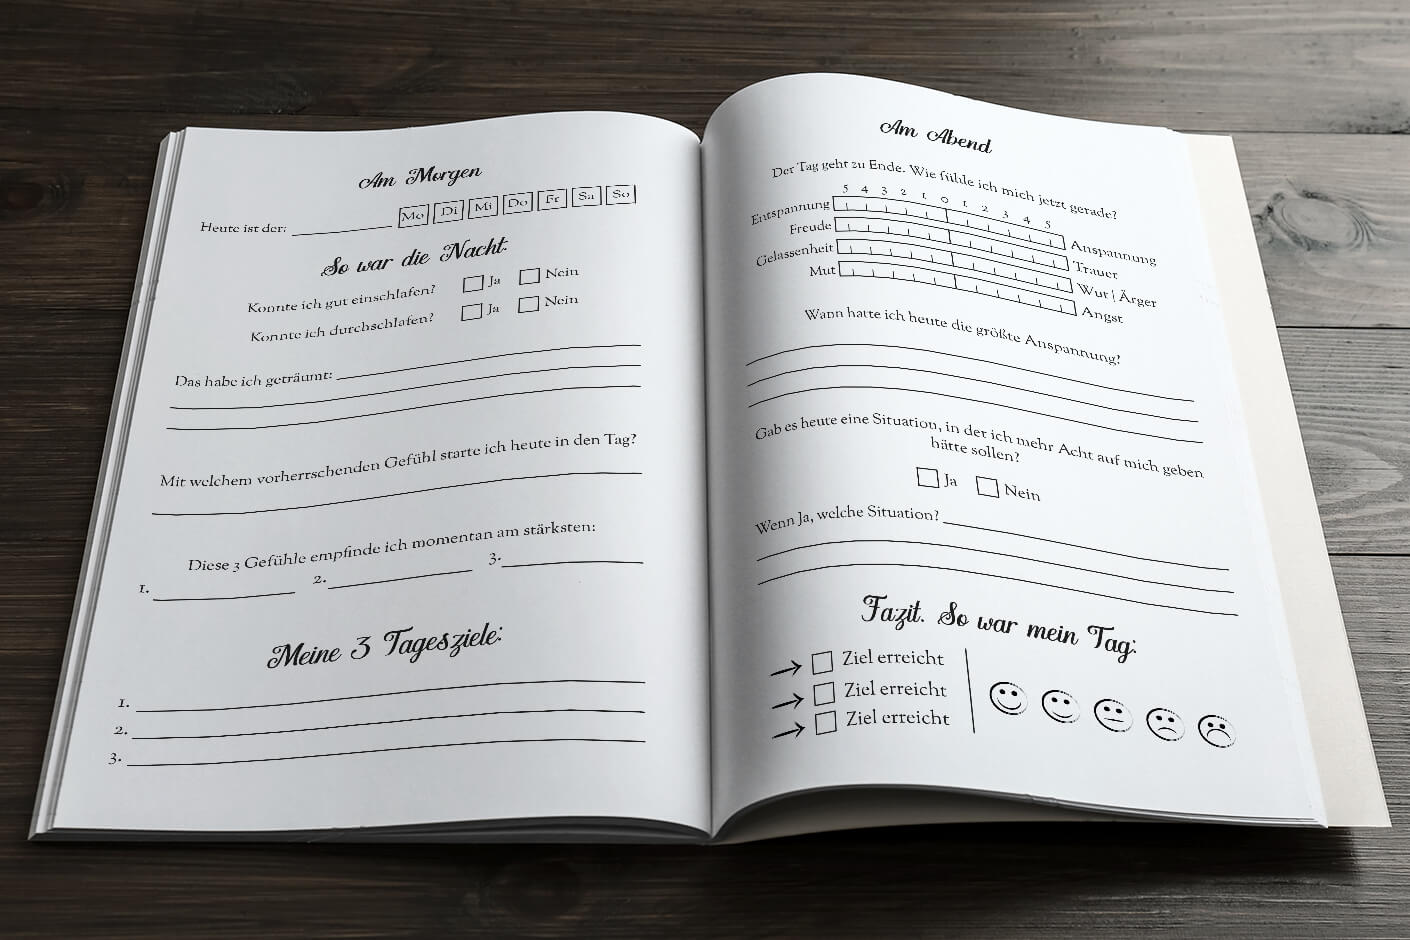 Am Morgen
Heute ist der: Mo Di Mi Do Fr Sa So
So war die Nacht:
Konnte ich gut einschlafen? Ja Nein
Konnte ich durchschlafen? Ja Nein
Das habe ich geträumt:
Mit welchem vorherrschenden Gefühl starte ich heute in den Tag?
Diese 3 Gefühle empfinde ich momentan am stärksten:
1. 2. 3.
Meine 3 Tagesziele:
1.
2.
3.
Am Abend
Der Tag geht zu Ende. Wie fühle ich mich jetzt gerade?
5 4 3 2 1 0 1 2 3 4 5
Entspannung Anspannung
Freude Trauer
Gelassenheit Wut | Ärger
Mut Angst
Wann hatte ich heute die größte Anspannung?
Gab es heute eine Situation, in der ich mehr Acht auf mich geben
hätte sollen?
Ja Nein
Wenn Ja, welche Situation?
Fazit. So war mein Tag:
Ziel erreicht
Ziel erreicht
Ziel erreicht